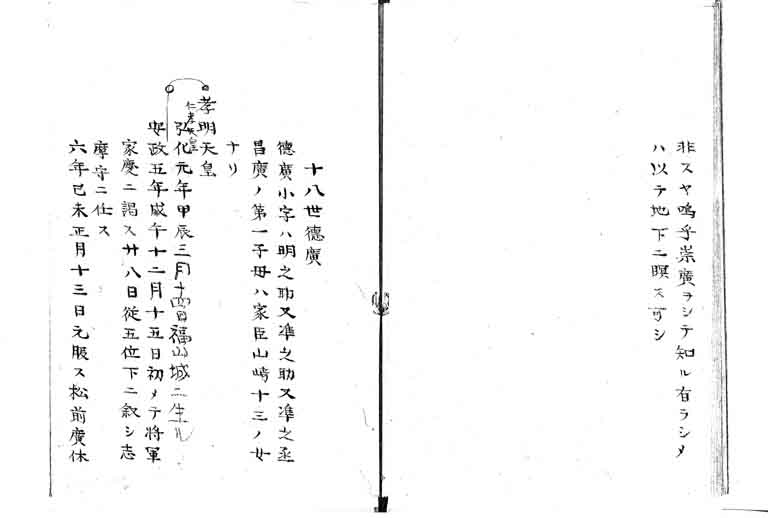 非スヤ嗚乎崇廣ヲシテ知ル有ラシメ
ハ以テ地下ニ瞑ス可シ
十八世德廣
德廣小字ハ明之助又準之助又準之丞
昌廣ノ第一子母ハ家臣山崎十三ノ女
ナリ
孝明天皇
仁孝天皇
弘化元年甲辰三月十四日福山城ニ生ル
安政五年戊午十二月十五日初メテ將軍
家慶ニ謁ス廿八日從五位下ニ叙シ志
摩守ニ任ス
六年己未正月十三日元服ス松前廣休